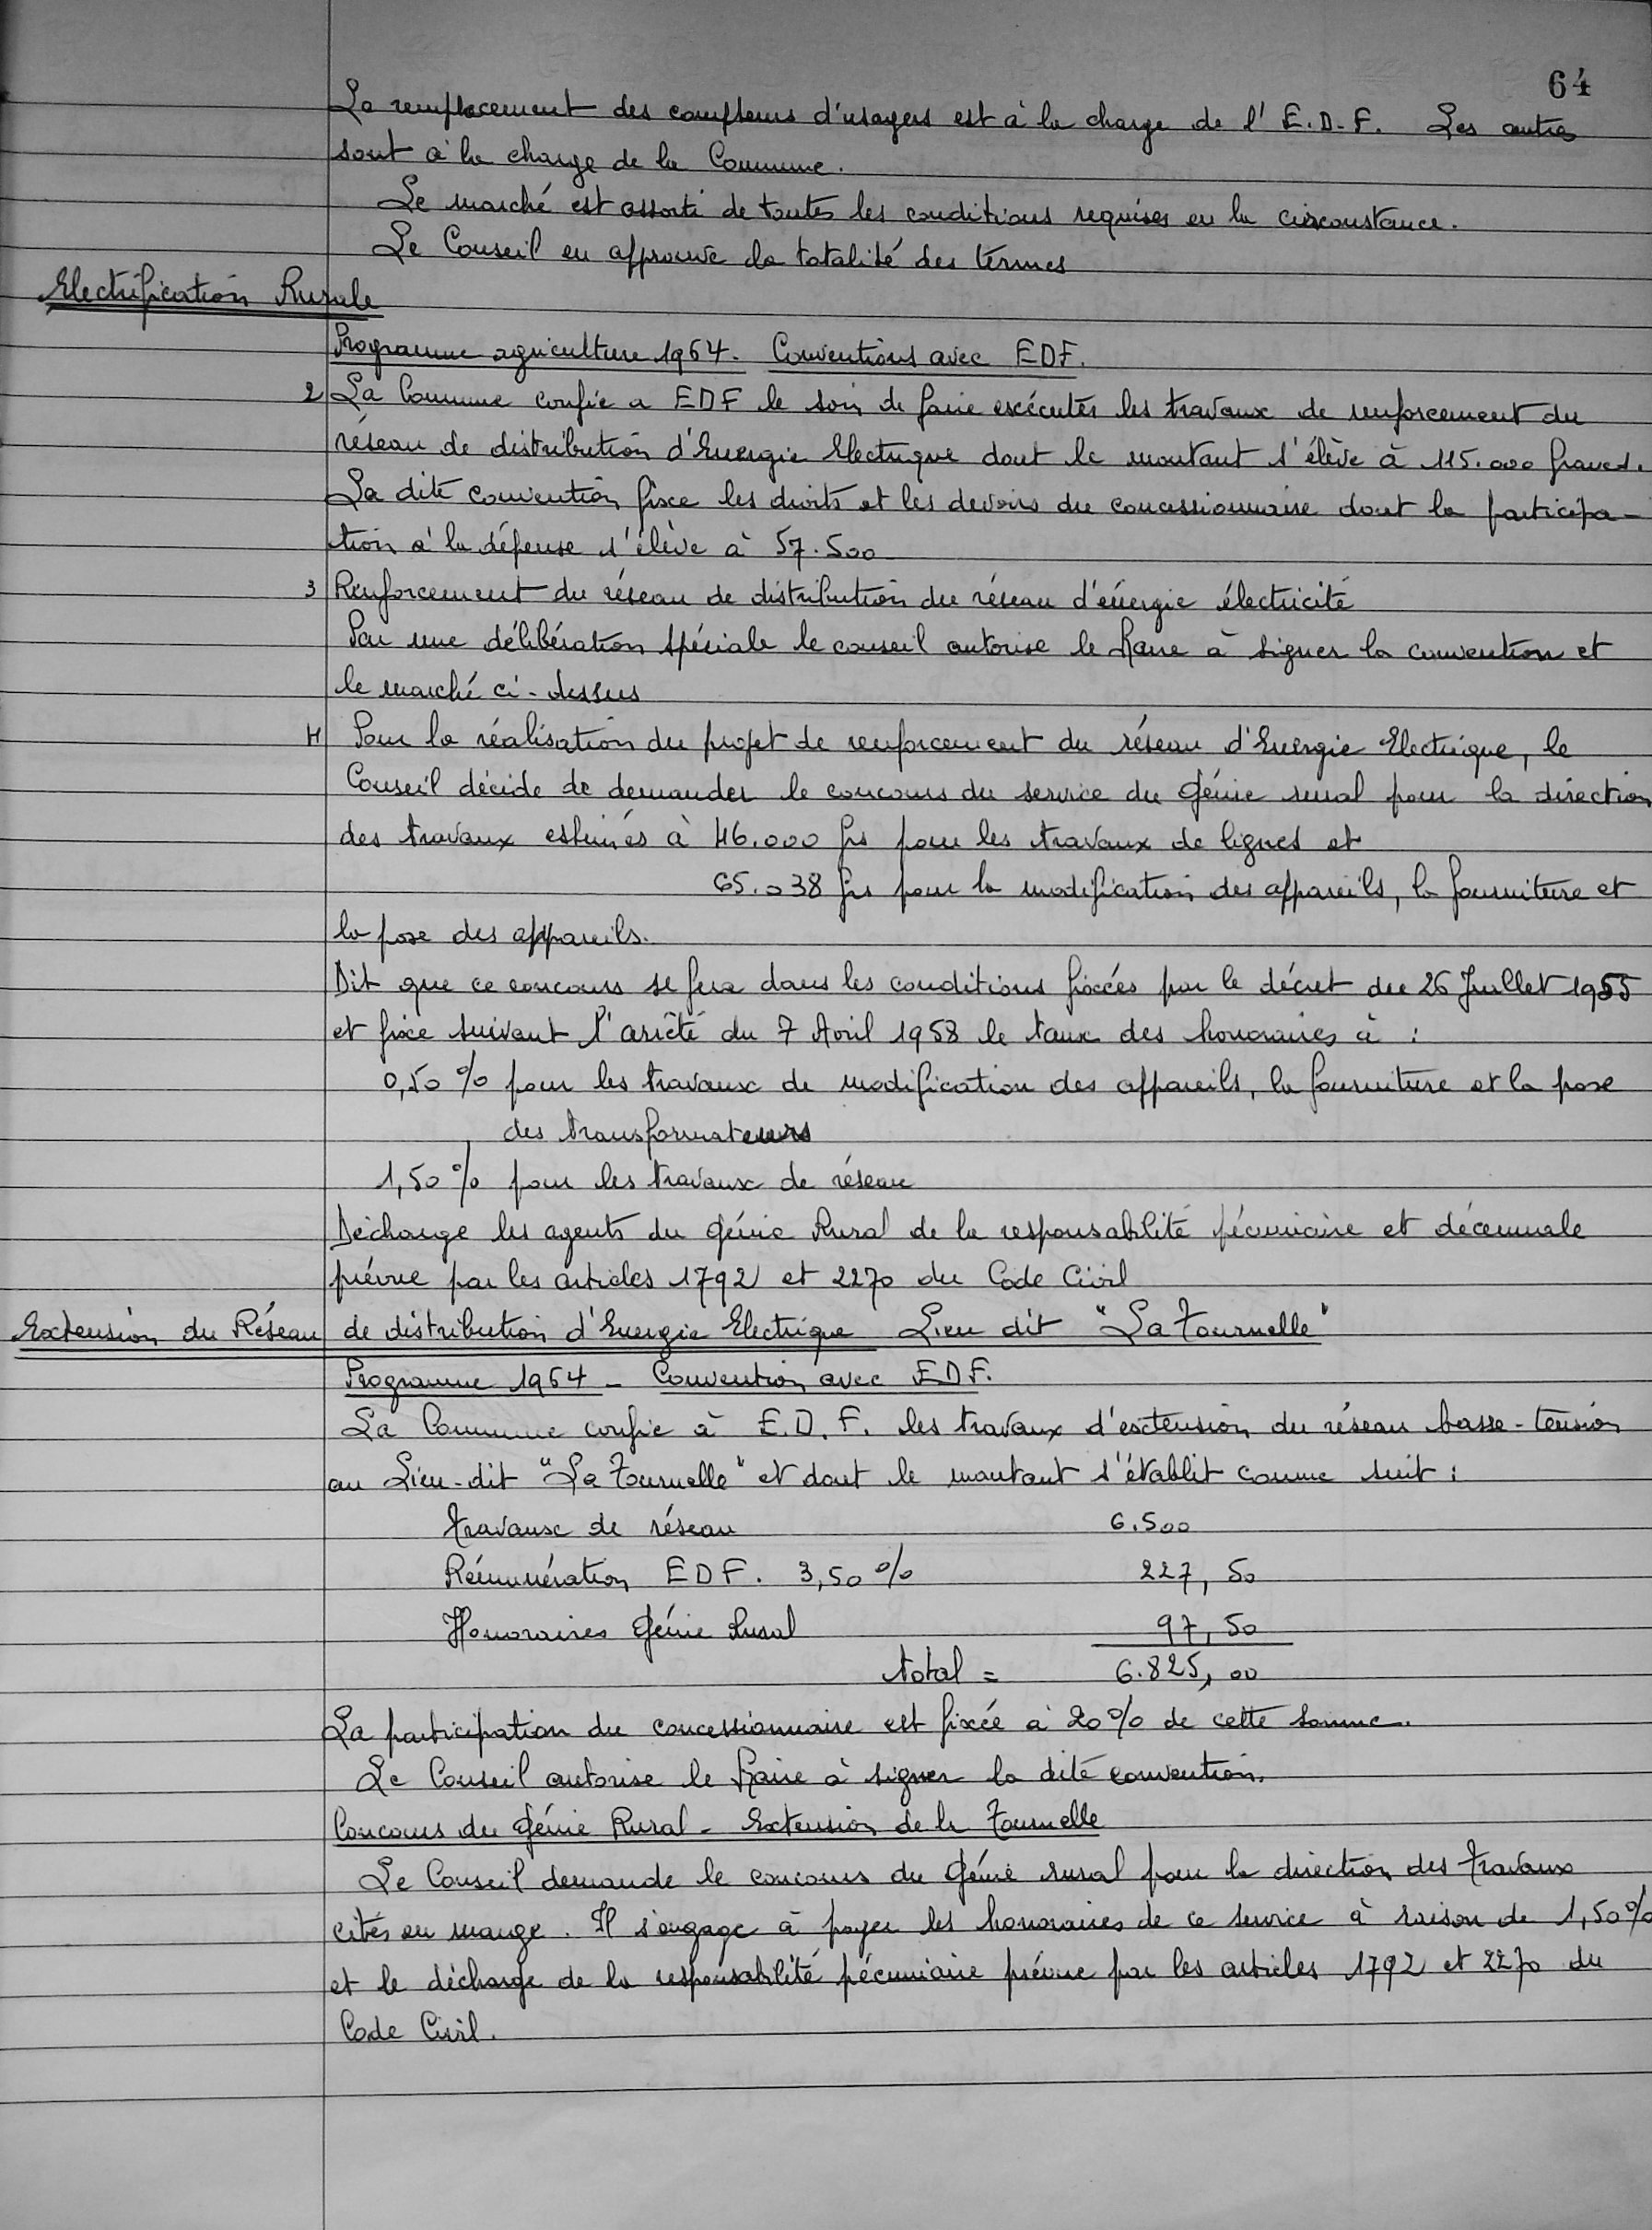 64
Le remplacement des compteurs d'usagers est à la charge de l'E.D.F. Les autres
sont à la charge de la Commune.
Le marché est assorti de toutes les conditions requises en la circonstance.
Le Conseil en approuve la totalité des termes
Electrification Rurale
Programme agriculture 1964. Conventions avec EDF.
2 La Commune confie a EDF le soin de faire exécuter les travaux de renforcement du
réseau de distribution d'Energie Electrique dont le montant s'élève à 115.000 francs.
La dite convention fixe les droits et les devoirs du concessionnaire dont la participa-
tion à la dépense s'élève à 57.500
3 Renforcement du réseau de distribution du réseau d'énergie électricité
Par une délibération spéciale le conseil autorise le Maire à signer la convention et
le marché ci-dessus
4 Pour la réalisation du projet de renforcement du réseau d'Energie Electrique, le
Conseil décide de demander le concours du service du Génie rural pour la direction
des travaux estimés à 46.000 frs pour les travaux de lignes et
65.038 frs pour la modification des appareils, la fourniture et
la pose des appareils.
Dit que ce concours se fera dans les conditions fixées par le décret du 26 Juillet 1955
et fixe suivant l'arrêté du 7 Avril 1958 le taux des honoraires à :
0,50 % pour les travaux de modification des appareils, la fourniture et la pose
des transformateurs
1,50 % pour les travaux de réseau
Décharge les agents du Génie Rural de la responsabilité pécuniaire et décennale
prévue par les articles 1792 et 2270 du Code Civil
Extension du Réseau de distribution d'Energie Electrique Lieu dit "La Tournelle"
Programme 1964 - Convention avec EDF.
La Commune confie à E.D.F. les travaux d'extension du réseau basse-tension
au Lieu-dit "La Tournelle" et dont le montant s'établit comme suit :
Travaux de réseau 6.500
Rémunération EDF. 3,50 % 227,50
Honoraires Génie Rural 97,50
total = 6.825,00
La participation du concessionnaire est fixée à 20 % de cette somme.
Le Conseil autorise le Maire à signer la dite convention.
Concours du Génie Rural - Extension de la Tournelle
Le Conseil demande le concours du Génie rural pour la direction des travaux
cités en marge. Il s'engage à payer les honoraires de ce service à raison de 1,50 %
et le décharge de la responsabilité pécuniaire prévue par les articles 1792 et 2270 du
Code Civil.